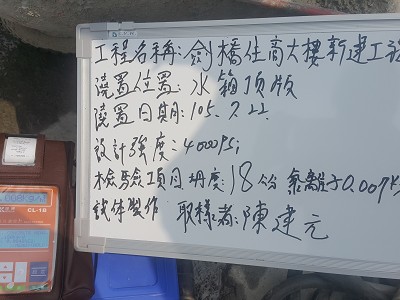 工程名稱: 劍橋住商大樓新建工
澆置位置: 水箱頂版
澆置日期: 105.7.22.
設計強度: 4000PSi
檢驗項目 坍度: 18㎝ 氯離子0.007
試体製作 取樣者: 陳建元
CL-1B